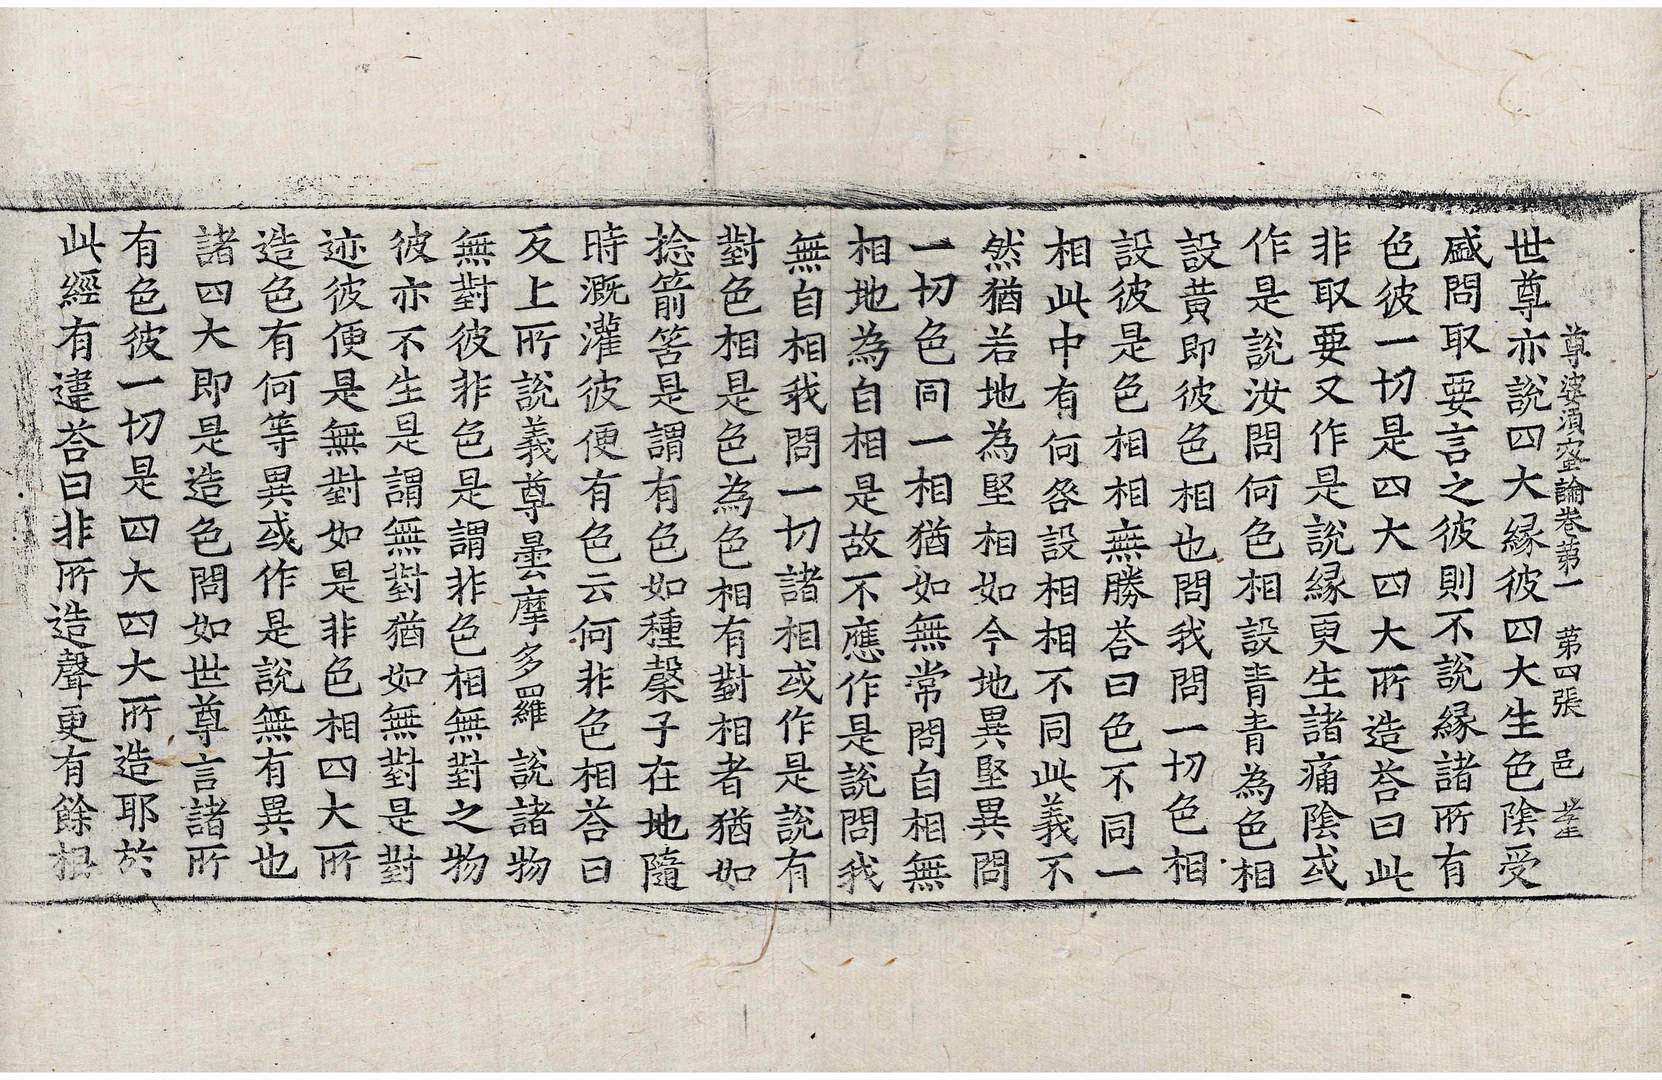 尊婆須蜜論卷第一 第四張 邑
世尊亦説四大縁彼四大生色陰受
盛問取要言之彼則不説縁諸所有
色彼一切是四大四大所造荅曰此
非取要又作是説縁更生諸痛陰或
作是説汝問何色相設青青為色相
設黃即彼色相也問我問一切色相
設彼是色相相無勝荅曰色不同一
相此中有何咎設相相不同此義不
然猶若地為堅相如今地異堅異問
一切色同一相猶如無常問自相無
相地為自相是故不應作是説問我
無自相我問一切諸相或作是説有
對色相是色為色相有對相者猶如
捻箭筈是謂有色如種㯹子在地隨
時溉灌彼便有色云何非色相荅曰
反上所説義尊曇摩多羅説諸物
無對彼非色是謂非色相無對之物
彼亦不生是謂無對猶如無對是對
迹彼便是無對如是非色相四大所
造色有何等異或作是説無有異也
諸四大即是造色問如世尊言諸所
有色彼一切是四大四大所造耶於
此經有違荅曰非所造聲更有餘根